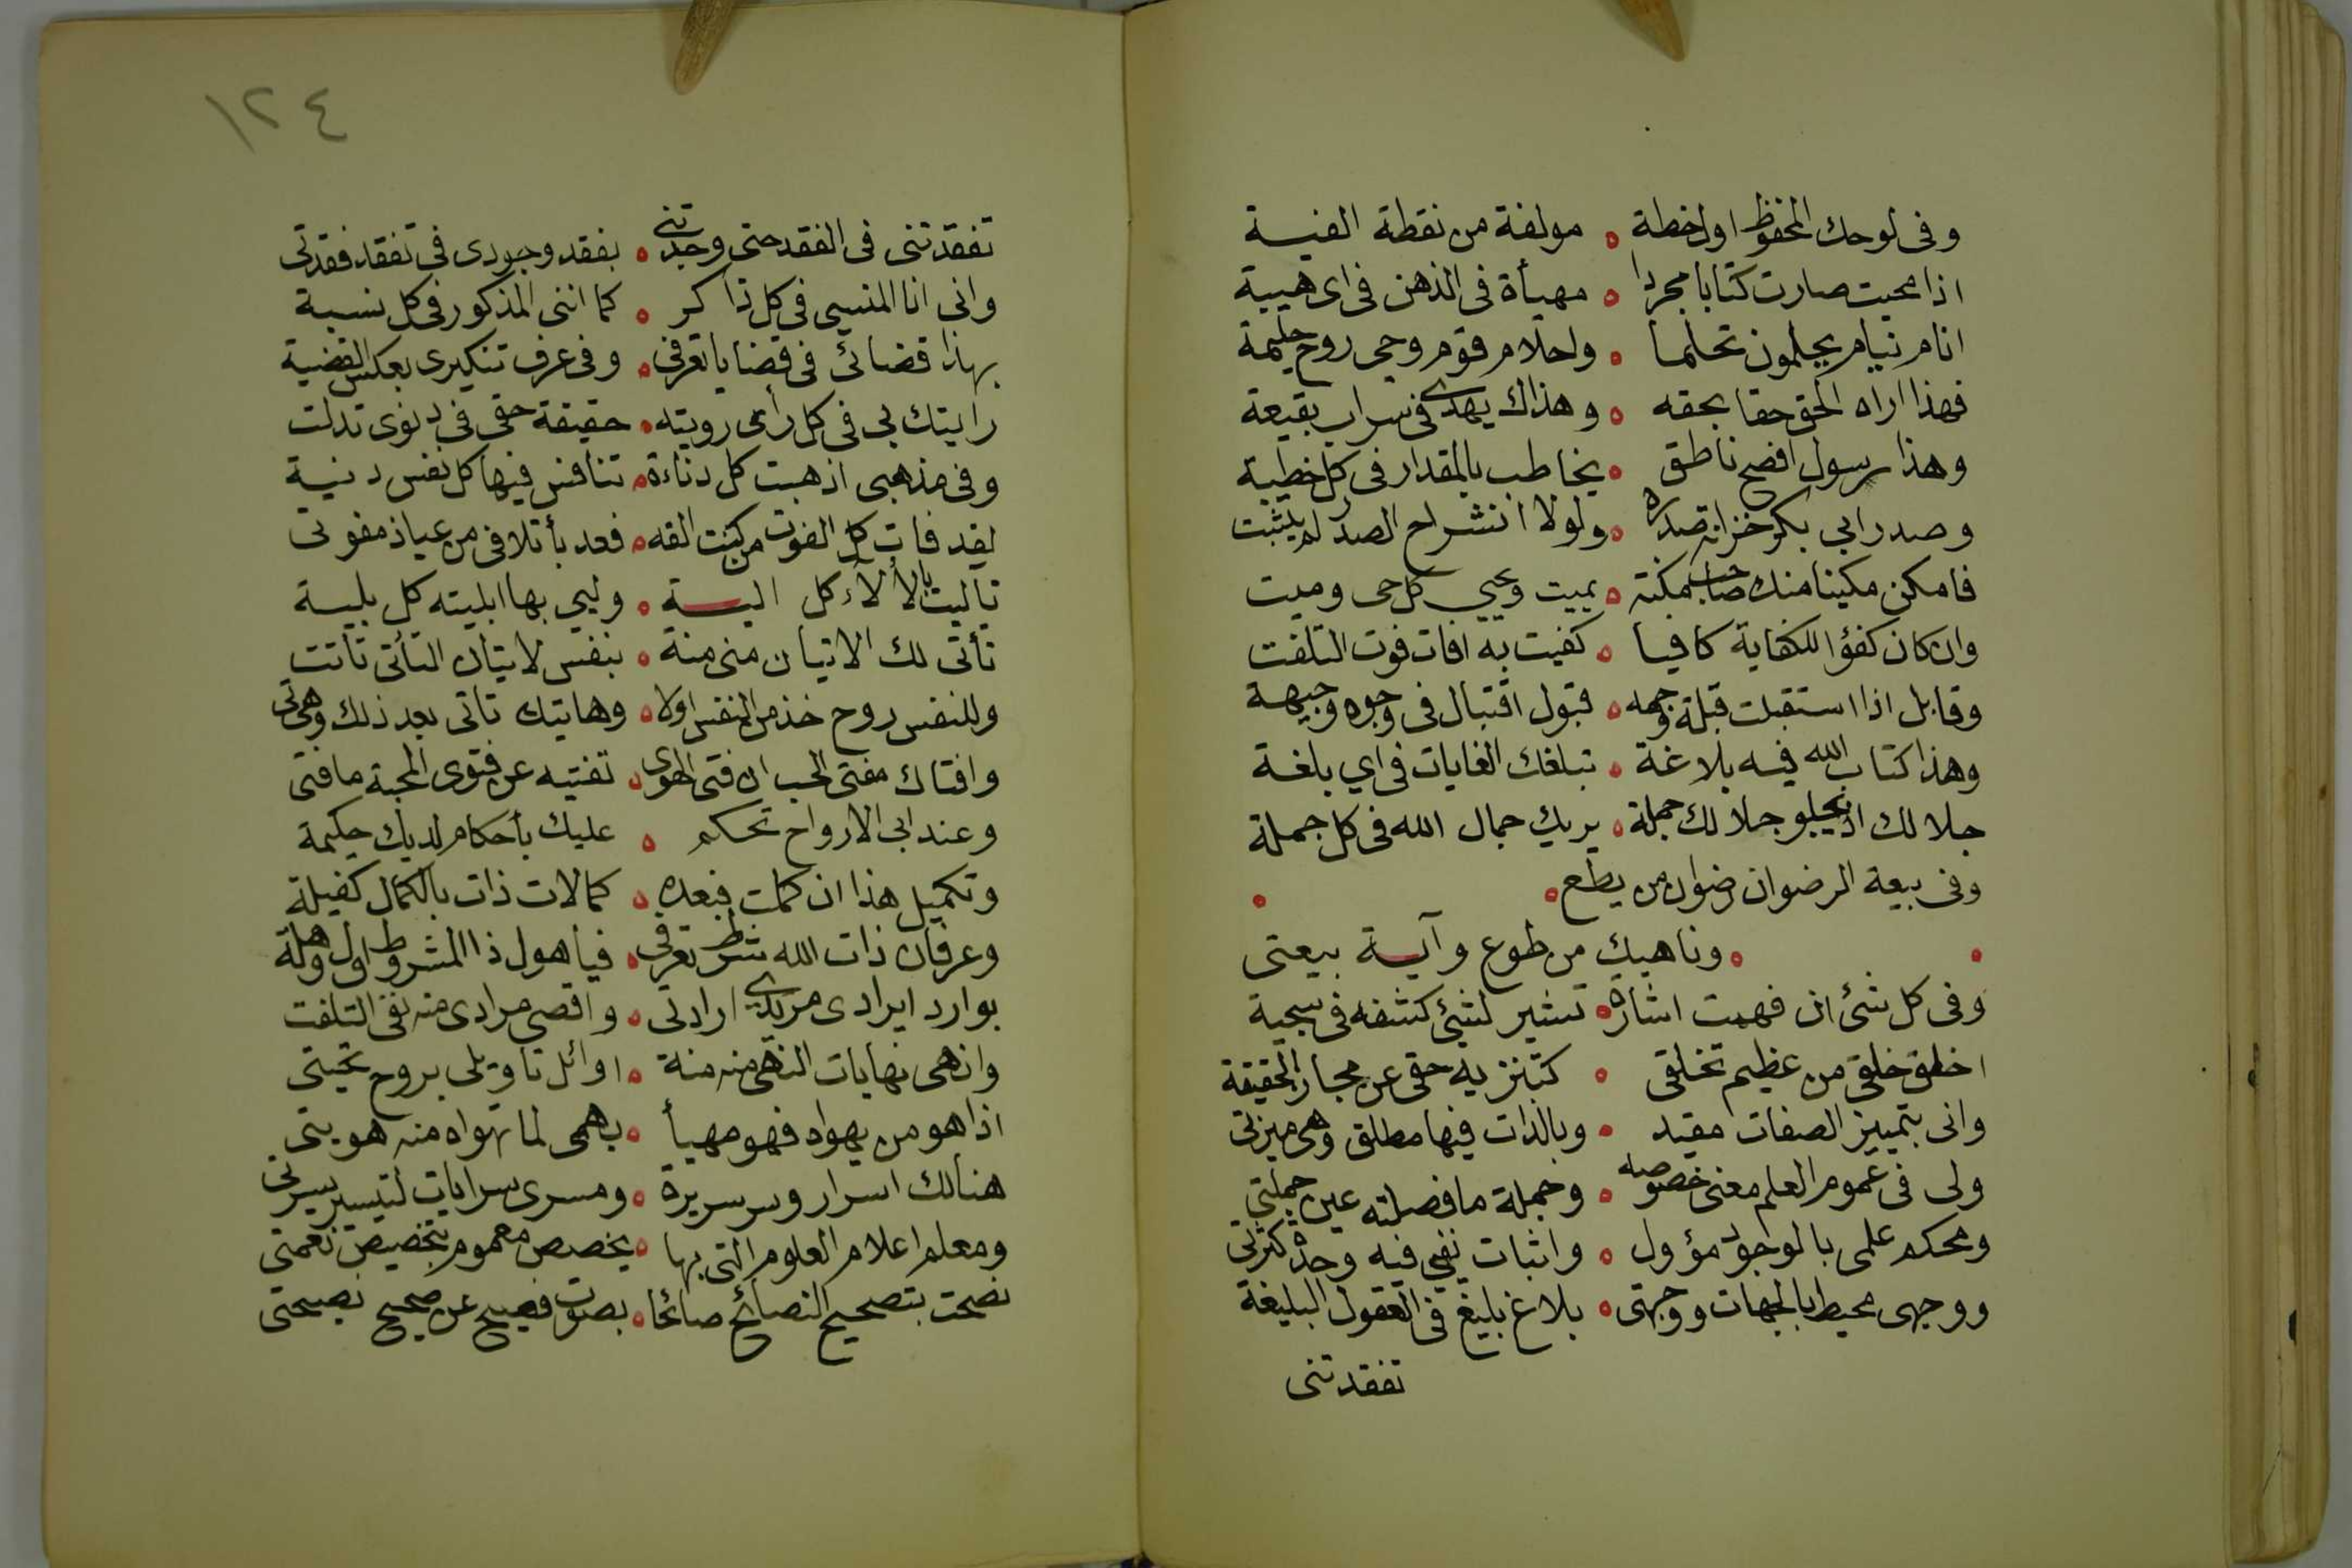 وفى لوحك المحفوظ اول خطة ه مولفة من نقطة الفيـة
اذا محيت صارت كتابا مجردا ه مهيأة فى الذهن فى اى هيية
انام نيام يحلمون تحلما ه واحلام قوم روحى روح حليمة
فهذا اراه الحق حقا بحقه ه وهذاك يهدى فى سراب بقيعة
وهذا رسول افصح ناطق ه يخاطب بالمقدار فى كل خطبة
وصدر ابى بكر خزانة صدره ه ولولا انشراح الصدر لم يثبت
فامكن مكينا منك صاحب مكنة ه يميت ويحيى كل حى وميت
وان كان كفؤا للكفاية كافيا ه كفيت به افات فوت التلفت
وقابل اذا استقبلت قبلة وجهه ه قبول اقتبال فى وجوه وجيهة
وهذا كتاب الله فيه بلاغة ه تبلغك الغايات فى اي بلغة
جلا لك اذ يجلو جلالك جملة ه يريك جمال الله فى كل جملة
وفى بيعة الرضوان رضوان من يطع ه
ه وناهيك من طوع وآيـة بيعتى
وفى كل شئ ان فهمت اشارة ه تشير لشئ كشفه فى سجية
اخلق خلقى من عظيم تخلقى ه كتنزيه حقى عن مجاز الحقيقة
وانى بتمييز الصفات مقيد ه وبالذات فيها مطلق وهى ميزتى
ولى فى عموم العلم معنى خصوصه ه وجملة ما فصلته عين جملتى
ومحكم علمى بالوجود مؤول ه واثبات نفيى فيه وحدة كثرتى
ووجهى محيط بالجهات ووجهتى ه بلاغ بليغ فى العقول البليغة
تفقدتنى
١٢٤
تفقدتنى فى الفقد حتى وجدتنى ه بفقد وجودى فى تفقد فقدتى
وانى انا المنسى فى كل ذاكر ه كما اننى المذكور فى كل نسبة
بهذا قضائى فى قضايا تعرفى ه وفى عرف تنكيرى بعكس القضية
رايتك بى فى كل رأى رويته ه حقيقة حقى فى دنوى تدلت
وفى مذهبى اذهبت كل دناءة ه تنافس فيها كل نفس دنية
لقد فات كل الفوت من كنت القه ه فعد بأتلافى من عياذ مفوتى
تاليت بالالاء كل اليـة ه وليى بها ابليته كل بلية
تأتى لك الاتيان منى منة ه بنفس لاتيان التأتى تاتت
وللنفس روح خذ من النفس اولا ه وهايتك تاتى بعد ذلك وهى تى
وافتاك مفتى الحب ان فتى الهوى ه تفتيه عن فتوى المحبة مافتى
وعند ابى الارواح تحكم ه عليك بأحكام لديك حكيمة
وتكميل هذا ان كملت فبعده ه كمالات ذات بالكمال كفيلة
وعرفان ذات الله شرط تعرفى ه فيا هول ذا المشروط اول وهلة
بوارد ايرادى مريدى ارادتى ه واقصى مرادى منه نفى التلفت
وانهى نهايات النهى منه منة ه اوائل تاويلى بروح تحيتى
اذا هو من يهواه فهو مهيأ ه بهمى لما تهواه منه هويتى
هنالك اسرار وسر سريرة ه ومسرى سرايات لتيسير يسرتى
ومعلم اعلام العلوم التى بها ه يخصص معموم بتخصيص نعمتى
نصحت بتصحيح النصائح صائحا ه بصوت فصيح عن صحيح نصيحتى